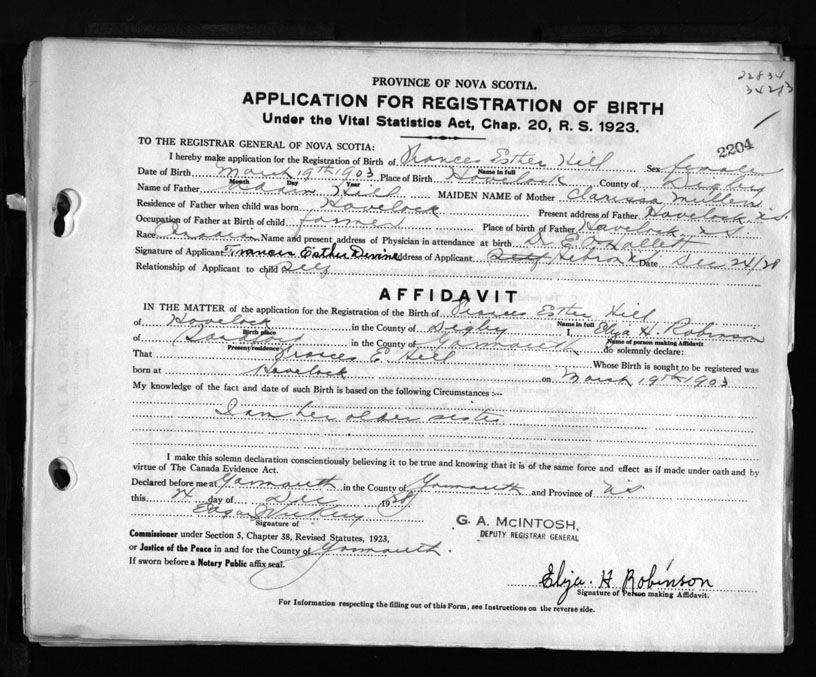 22834
34213
PROVINCE OF NOVA SCOTIA.
APPLICATION FOR REGISTRATION OF BIRTH
Under the Vital Statistics Act, Chap. 20, R. S. 1923.
2204
TO THE REGISTRAR GENERAL OF NOVA SCOTIA:
I hereby make application for the Registration of Birth of Frances Esther Hill Sex female
Name in full
Date of Birth March 19th 1903 Place of Birth Havelock County of Digby
Month Day Year
Name of Father Hill MAIDEN NAME of Mother Clarissa Mullen
Residence of Father when child was born Havelock Present address of Father Havelock N.S.
Occupation of Father at Birth of child farmer Place of birth of Father Havelock N.S.
Race Canadian Name and present address of Physician in attendance at birth Dr. E. O. Hallett
Signature of Applicant Frances Esther Devine Address of Applicant Self Hebron Date Dec 24/28
Relationship of Applicant to child Self
AFFIDAVIT
IN THE MATTER of the application for the Registration of the Birth of Frances Esther Hill
Name in full
of Havelock in the County of Digby I, Eliza H. Robinson
Birth place Name of person making Affidavit
of in the County of Yarmouth do solemnly declare:
Present residence
That Frances E. Hill Whose Birth is sought to be registered was
born at Havelock on March 19th 1903
My knowledge of the fact and date of such Birth is based on the following Circumstances :—
I am her older sister
I make this solemn declaration conscientiously believing it to be true and knowing that it is of the same force and effect as if made under oath and by
virtue of The Canada Evidence Act.
Declared before me at Yarmouth in the County of Yarmouth and Province of NS
this 24 day of Dec 1928
Edgar
Signature of
G. A. McINTOSH,
DEPUTY REGISTRAR GENERAL
Commissioner under Section 5, Chapter 38, Revised Statutes, 1923,
or Justice of the Peace in and for the County of Yarmouth.
If sworn before a Notary Public affix seal.
Eliza H Robinson
Signature of Person making Affidavit.
For Information respecting the filling out of this Form, see Instructions on the reverse side.